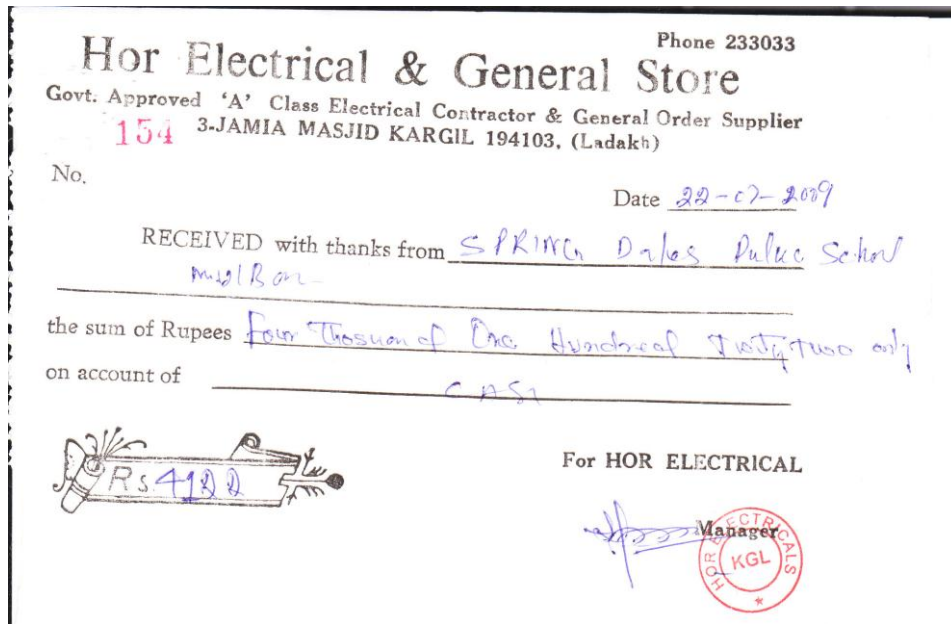 Phone 233033
Hor Electrical & General Store
Govt. Approved 'A' Class Electrical Contractor & General Order Supplier
154 3-JAMIA MASJID KARGIL 194103, (Ladakh)
No.
Date 22-07-2009
RECEIVED with thanks from SPRING Dales Pulic School
the sum of Rupees Four Thosuand One Hundread Twety two only
on account of CASH
Rs 4122
For HOR ELECTRICAL
Manager
HOR ELECTRICALS
KGL